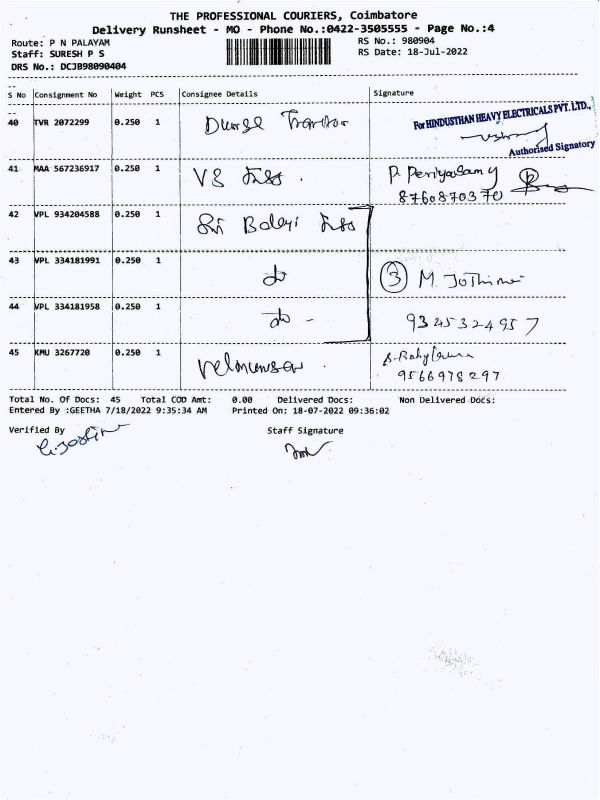 THE PROFESSIONAL COURIERS, Coimbatore
Delivery Runsheet - MO - Phone No.:0422-3505555 - Page No.:4
Route: P N PALAYAM RS No.: 980904
Staff: SURESH P S RS Date: 18-Jul-2022
DRS No.: DCJB98090404
S No Consignment No Weight PCS Consignee Details Signature
40 TVR 2072299 0.250 1
For HINDUSTHAN HEAVY ELECTRICALS PVT. LTD.,
Authorised Signatory
41 MAA 567236917 0.250 1 VS P. Periyasamy
8760870370
42 VPL 934204588 0.250 1 Sri Balaji
43 VPL 334181991 0.250 1 3 M. Jothimani
44 VPL 334181958 0.250 1 9345324957
45 KMU 3267720 0.250 1
9566978297
Total No. Of Docs: 45 Total COD Amt: 0.00 Delivered Docs: Non Delivered Docs:
Entered By :GEETHA 7/18/2022 9:35:34 AM Printed On: 18-07-2022 09:36:02
Verified By Staff Signature